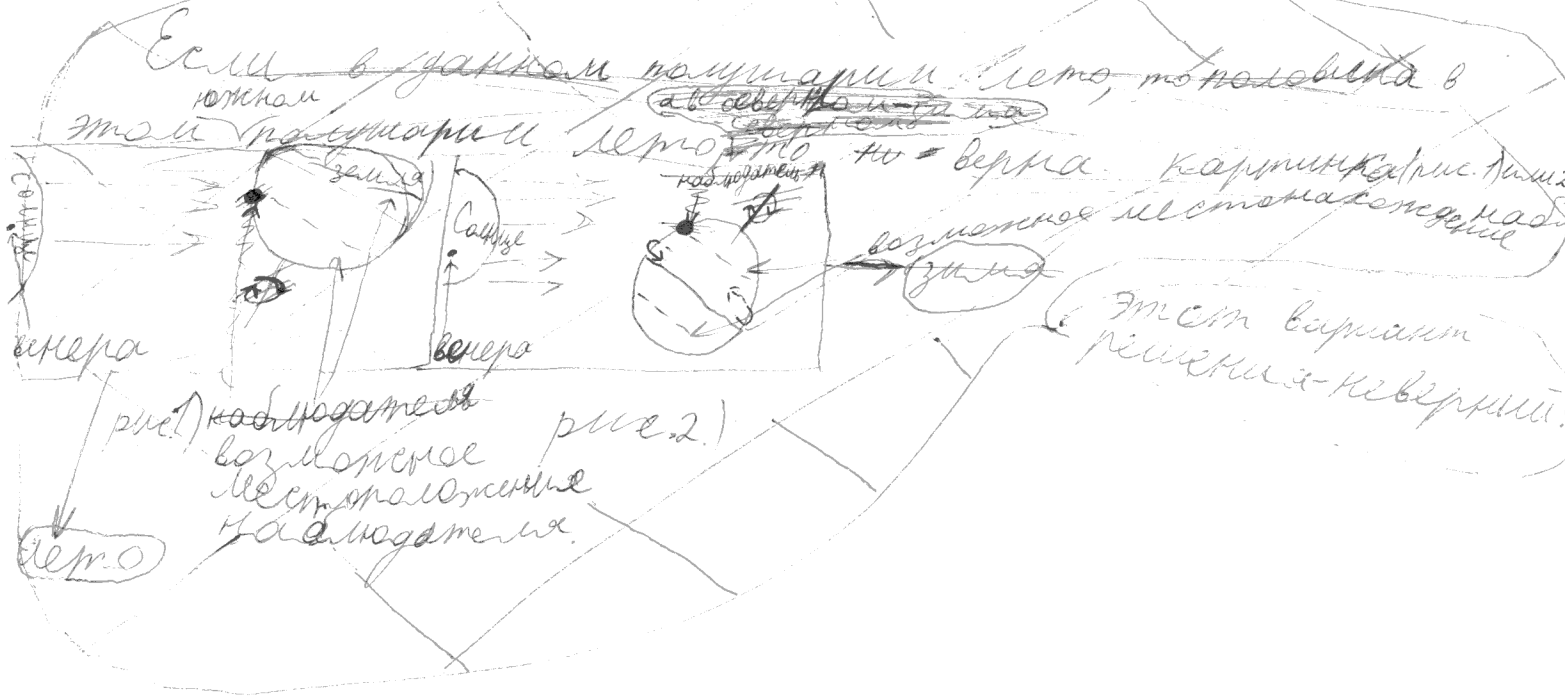 Если в данном полушарии лето, то половина в
южном
этом полушарии лето, то не верна картинка (рис. 1) или 2
Солнце
земля
Солнце
наблюдатель
возможное местонахождение наб
зима
венера
венера
этот вариант
решения-неверный.
рис. 1) наблюдатель
возможное
местоположение
наблюдателя.
рис. 2.)
лето